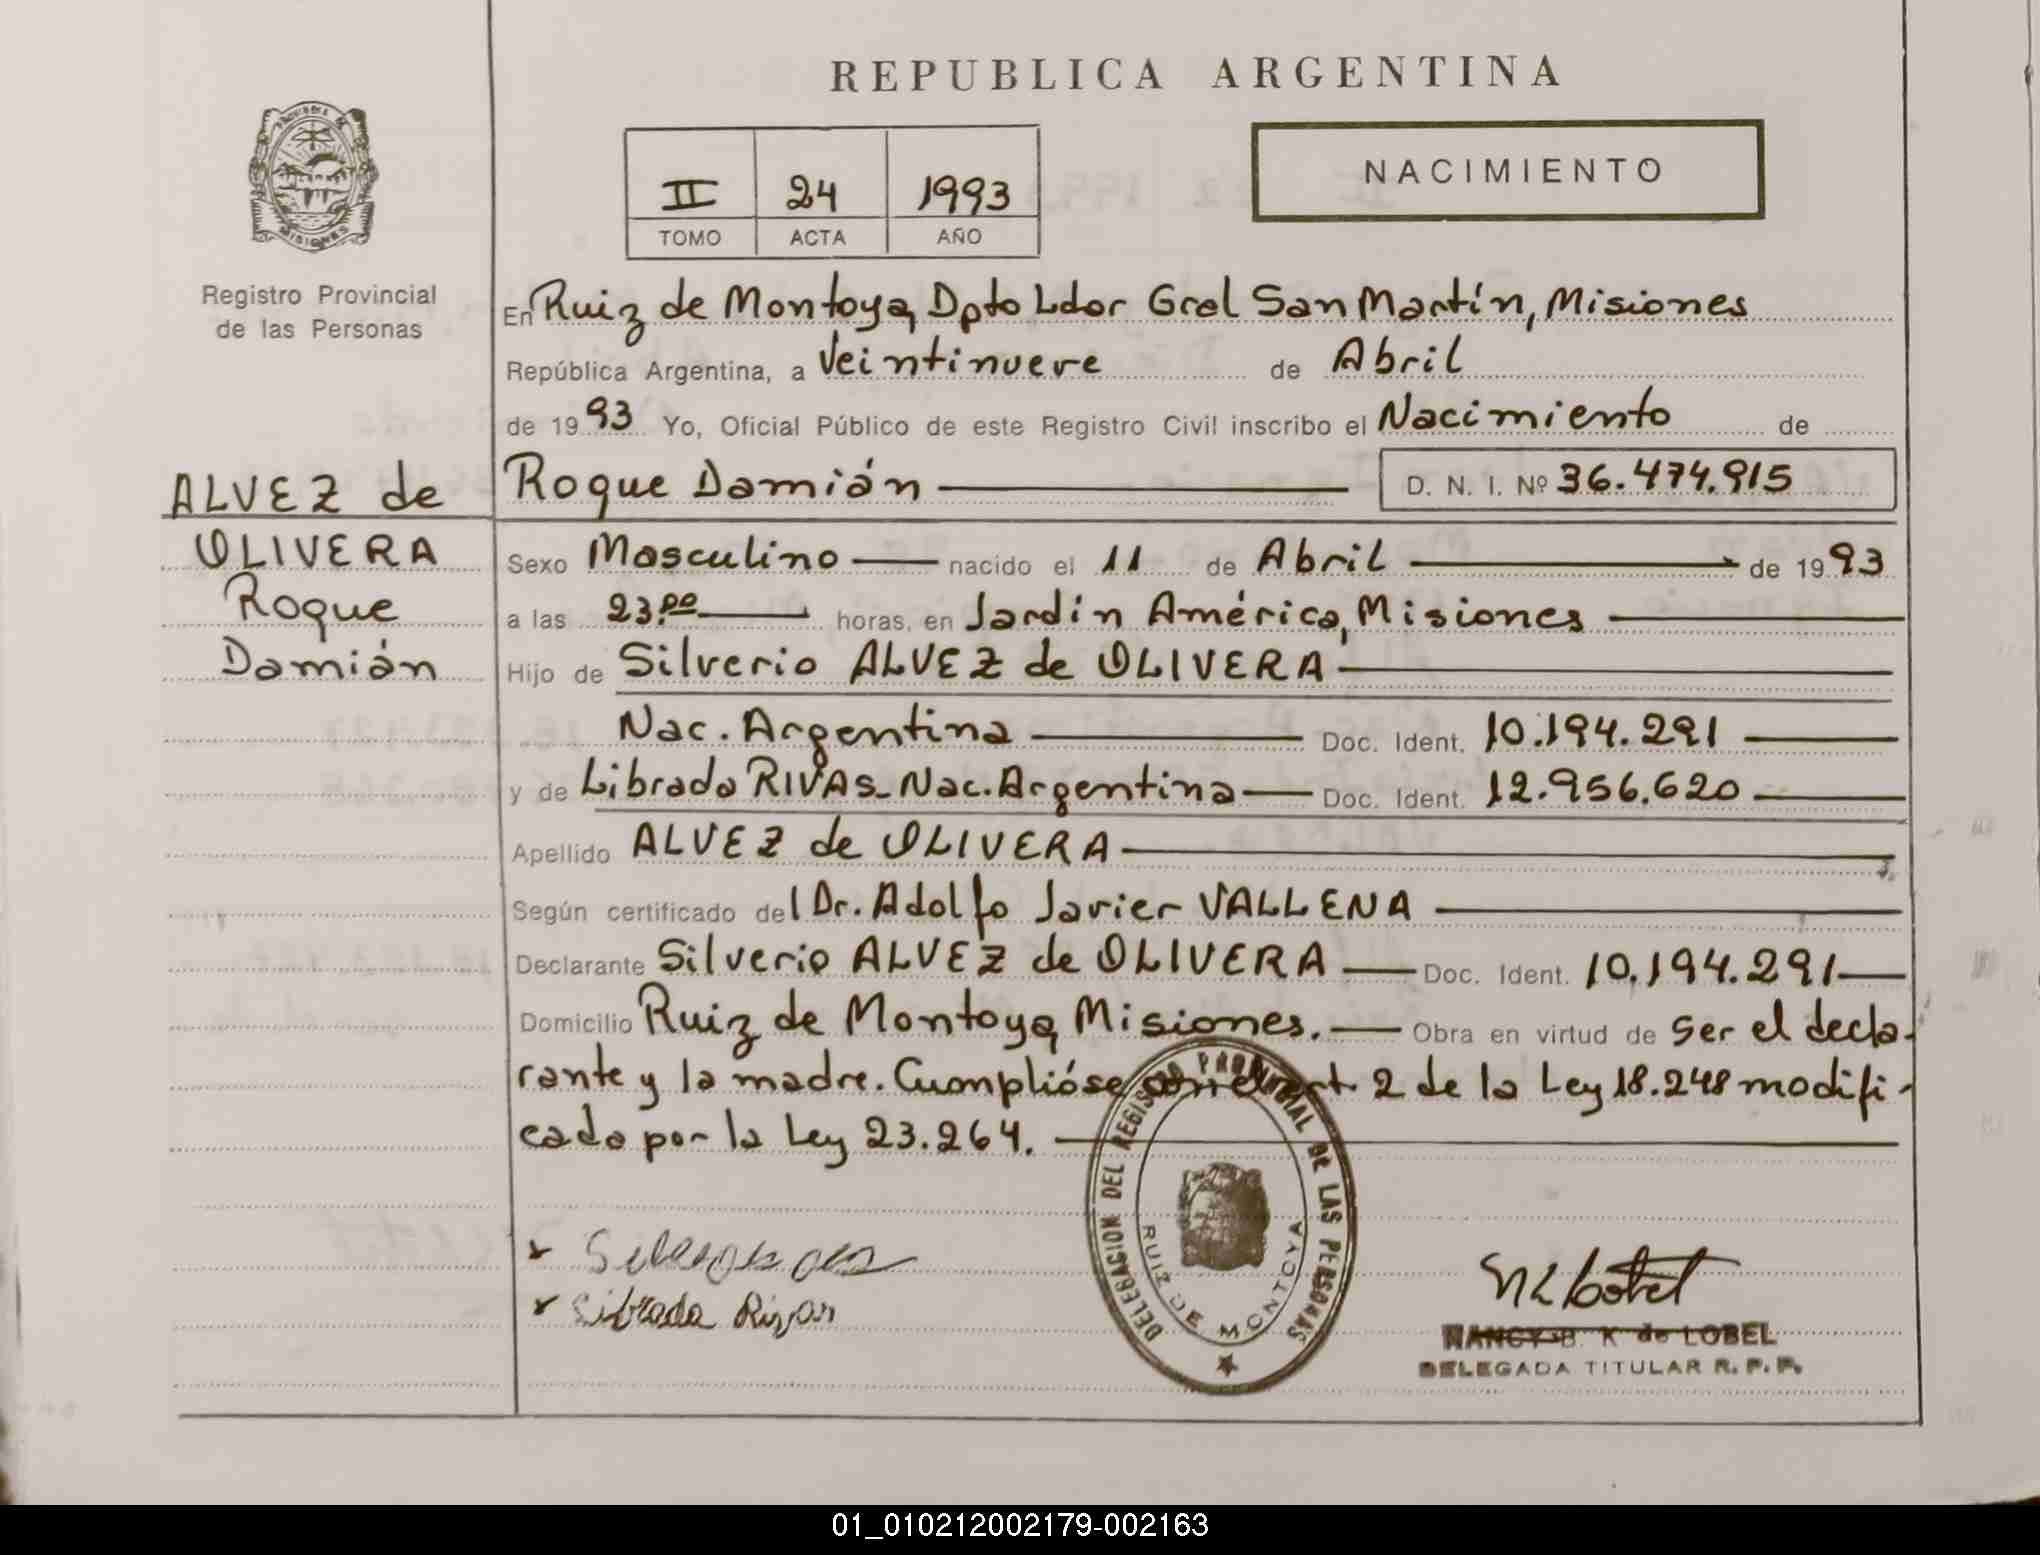 REPUBLICA ARGENTINA
PROVINCIA DE
MISIONES
Registro Provincial
de las Personas
II 24 1993
TOMO ACTA AÑO
NACIMIENTO
En Ruiz de Montoya, Dpto Ldor Gral San Martín, Misiones
República Argentina, a Veintinueve de Abril
de 1993 Yo, Oficial Público de este Registro Civil inscribo el Nacimiento de
ALVEZ de
OLIVERA
Roque
Damián
Roque Damián D. N. I. Nº 36.474.915
Sexo Masculino nacido el 11 de Abril de 1993
a las 23.00 horas, en Jardín América, Misiones
Hijo de Silverio ALVEZ de OLIVERA
Nac. Argentina Doc. Ident. 10.194.291
y de Librada RIVAS_ Nac. Argentina Doc. Ident. 12.956.620
Apellido ALVEZ de OLIVERA
Según certificado del Dr. Adolfo Javier VALLENA
Declarante Silverio ALVEZ de OLIVERA Doc. Ident. 10.194.291
Domicilio Ruiz de Montoya, Misiones. Obra en virtud de ser el decla-
rante y la madre. Cumplióse con el art. 2 de la Ley 18.248 modifi-
cada por la Ley 23.264.
DELEGACION DEL REGISTRO PROVINCIAL DE LAS PERSONAS
RUIZ DE MONTOYA
Librada Rivas
NANCY B. K de LOBEL
DELEGADA TITULAR R. P. P.
01_010212002179-002163